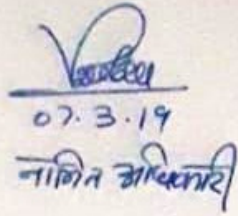 07.3.19
नामित अधिकारी